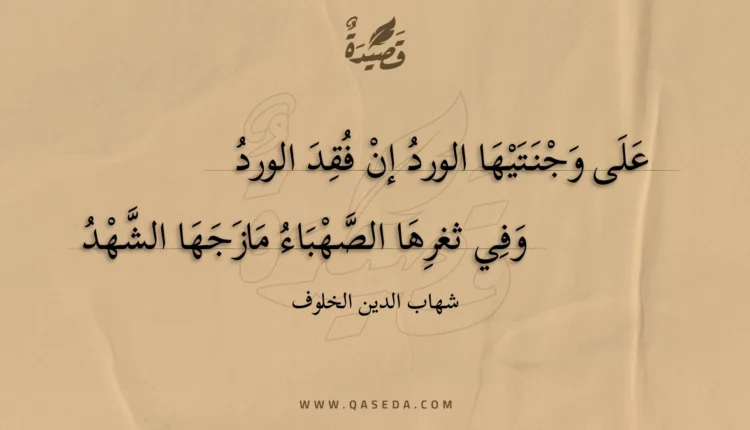 قَصِيدَةٌ
عَلَى وَجْنَتَيْهَا الوردُ إنْ فُقِدَ الوردُ
وَفِي ثغرِهَا الصَّهْبَاءُ مَازَجَهَا الشَّهْدُ
شهاب الدين الخلوف
WWW.QASEDA.COM